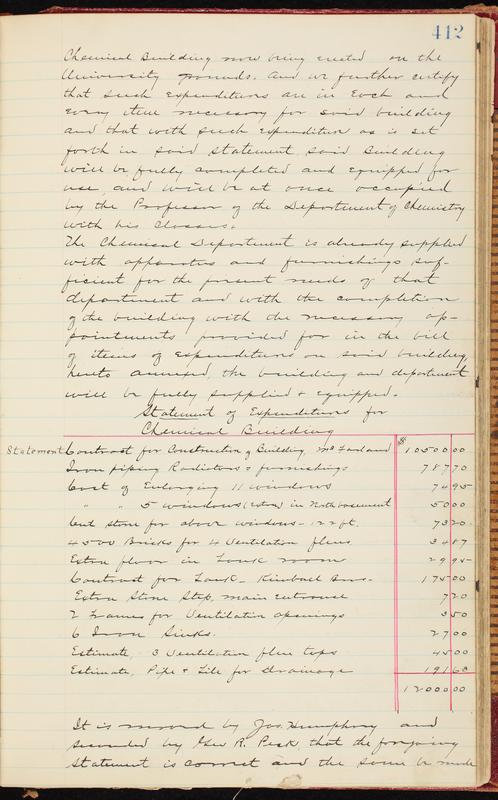 412
Chemical Building now being erected on the
University grounds. And we further certify
that such expenditures are in Each and
every item necessary for said building
and that with such expenditure as is set
forth in said statement said Building
will be fully completed and equipped for
use, and will be at once occupied
by the Professor of the Department of Chemistry
with his classes.
The Chemical Department is already supplied
with apparatus and furnishings suf-
ficient for the present needs of that
department and with the completion
of the building with the necessary ap-
pointments provided for in the bill
of items of expenditures on said building,
hereto annexed, the building and department
will be fully supplied & equipped.
Statement of Expenditures for
Chemical Building
Statement Contract for Construction of Building, McFarland $10500 00
Iron piping Radiators & furnishings 787 70
Cost of Enlarging 11 windows 74 95
" " 5 windows (extra) in North basement 50 00
Cut stone for above windows - 122 ft. 73 20
4500 Bricks for 4 Ventilation flues 34 87
Extra floor in Tank room 29 95
Contract for Tank - Kimball Bros. 175 00
Extra Stone Step, main entrance 7 20
2 Frames for Ventilation openings 3 50
6 Iron Sinks. 27 00
Estimate, 3 Ventilation flue tops 45 00
Estimate, Pipe & Tile for drainage 191 63
12000 00
It is moved by Jos. Humphrey and
seconded by Geo R. Peck, that the foregoing
Statement is correct and the same be made